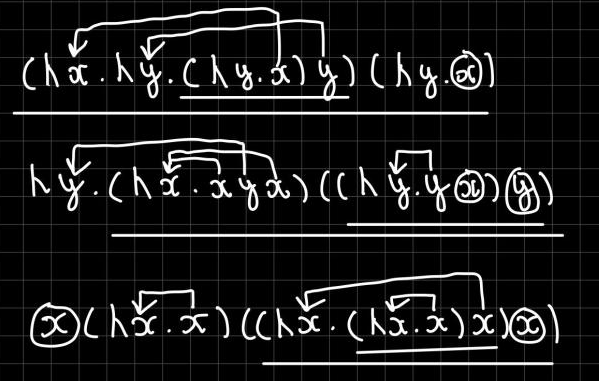 (λx.λy.(λy.x)y)(λy.x)
λy.(λx.xyx)((λy.yx)y)
x(λx.x)((λx.(λx.x)x)x)